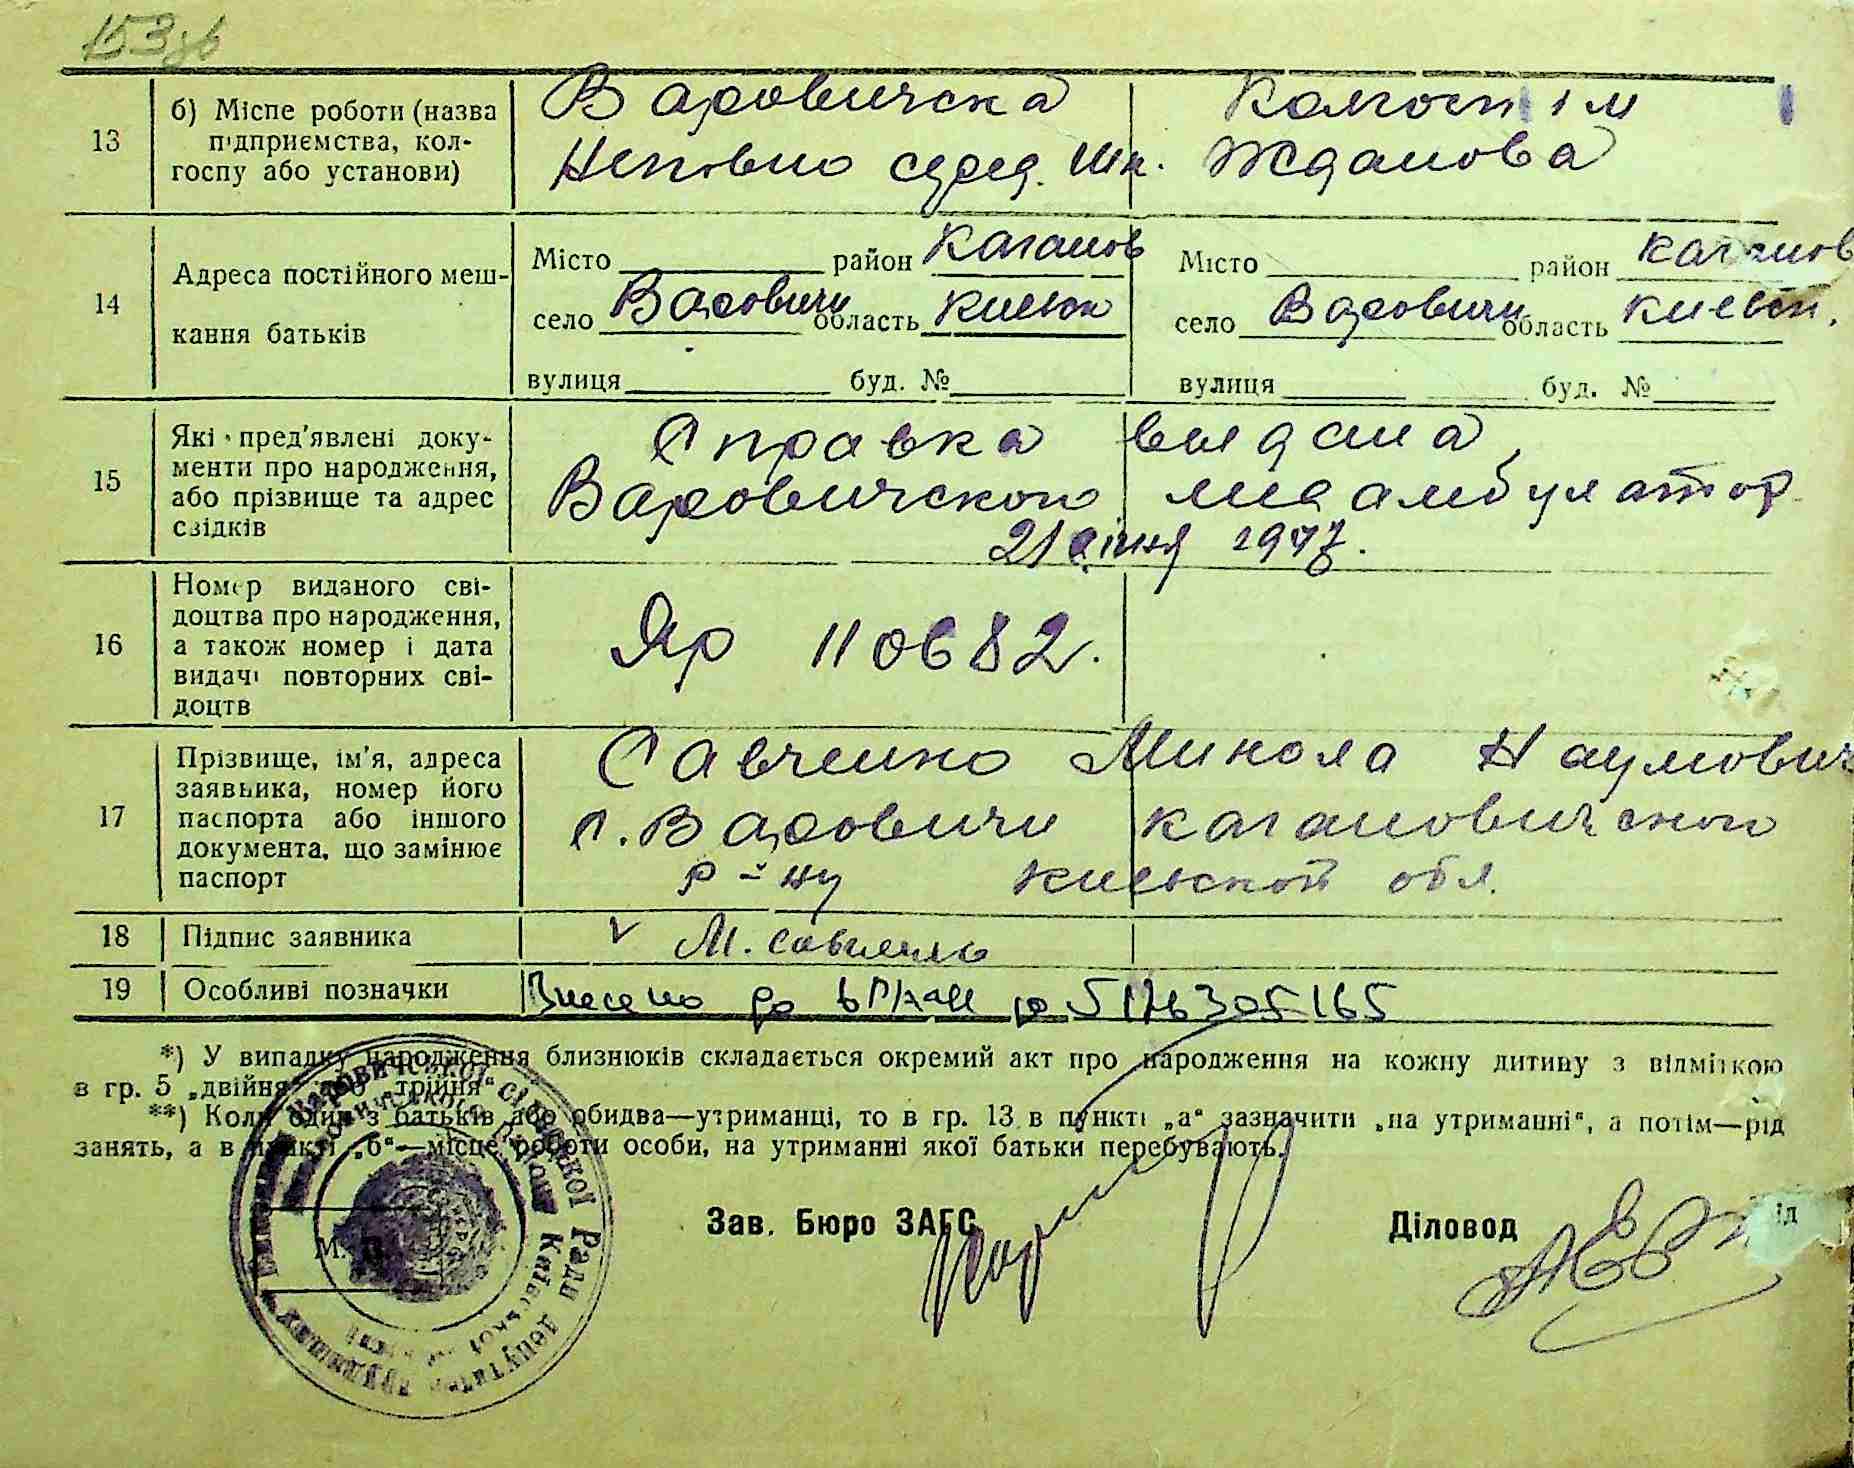 153зв
13 б) Міспе роботи (назва підприємства, колгоспу або установи) Варовичска Колгосп ім
Неповно серед. шк. Жданова
14 Адреса постійного мешкання батьків
Місто район Каганов Місто район Каганов
село Варовичи область Киевск село Варовичи область Киевск.
вулиця буд. № вулиця буд. №
15 Які пред'явлені документи про народження, або прізвище та адрес свідків
Справка выдана
Варовичскою медамбулатор
21 січня 1947.
16 Номер виданого свідоцтва про народження, а також номер і дата видачі повторних свідоцтв
Яр 110682.
17 Прізвище, ім'я, адреса заявника, номер його паспорта або іншого документа, що замінює паспорт
Савченко Микола Наумович
с. Варовичи Кагановичского
р-ну Киевской обл.
18 Підпис заявника V М. Савченко
19 Особливі позначки Внесено до
*) У випадку народження близнюків складається окремий акт про народження на кожну дитину з відміткою
в гр. 5 „двійня" або „трійня"
**) Коли один з батьків або обидва—утриманці, то в гр. 13 в пункті „а" зазначити „на утриманні", а потім—рід
занять, а в пункті „б"—місце роботи особи, на утриманні якої батьки перебувають.
Зав. Бюро ЗАГС Діловод
М. П.
Варовичської сільської Ради депутатів трудящих
Київської